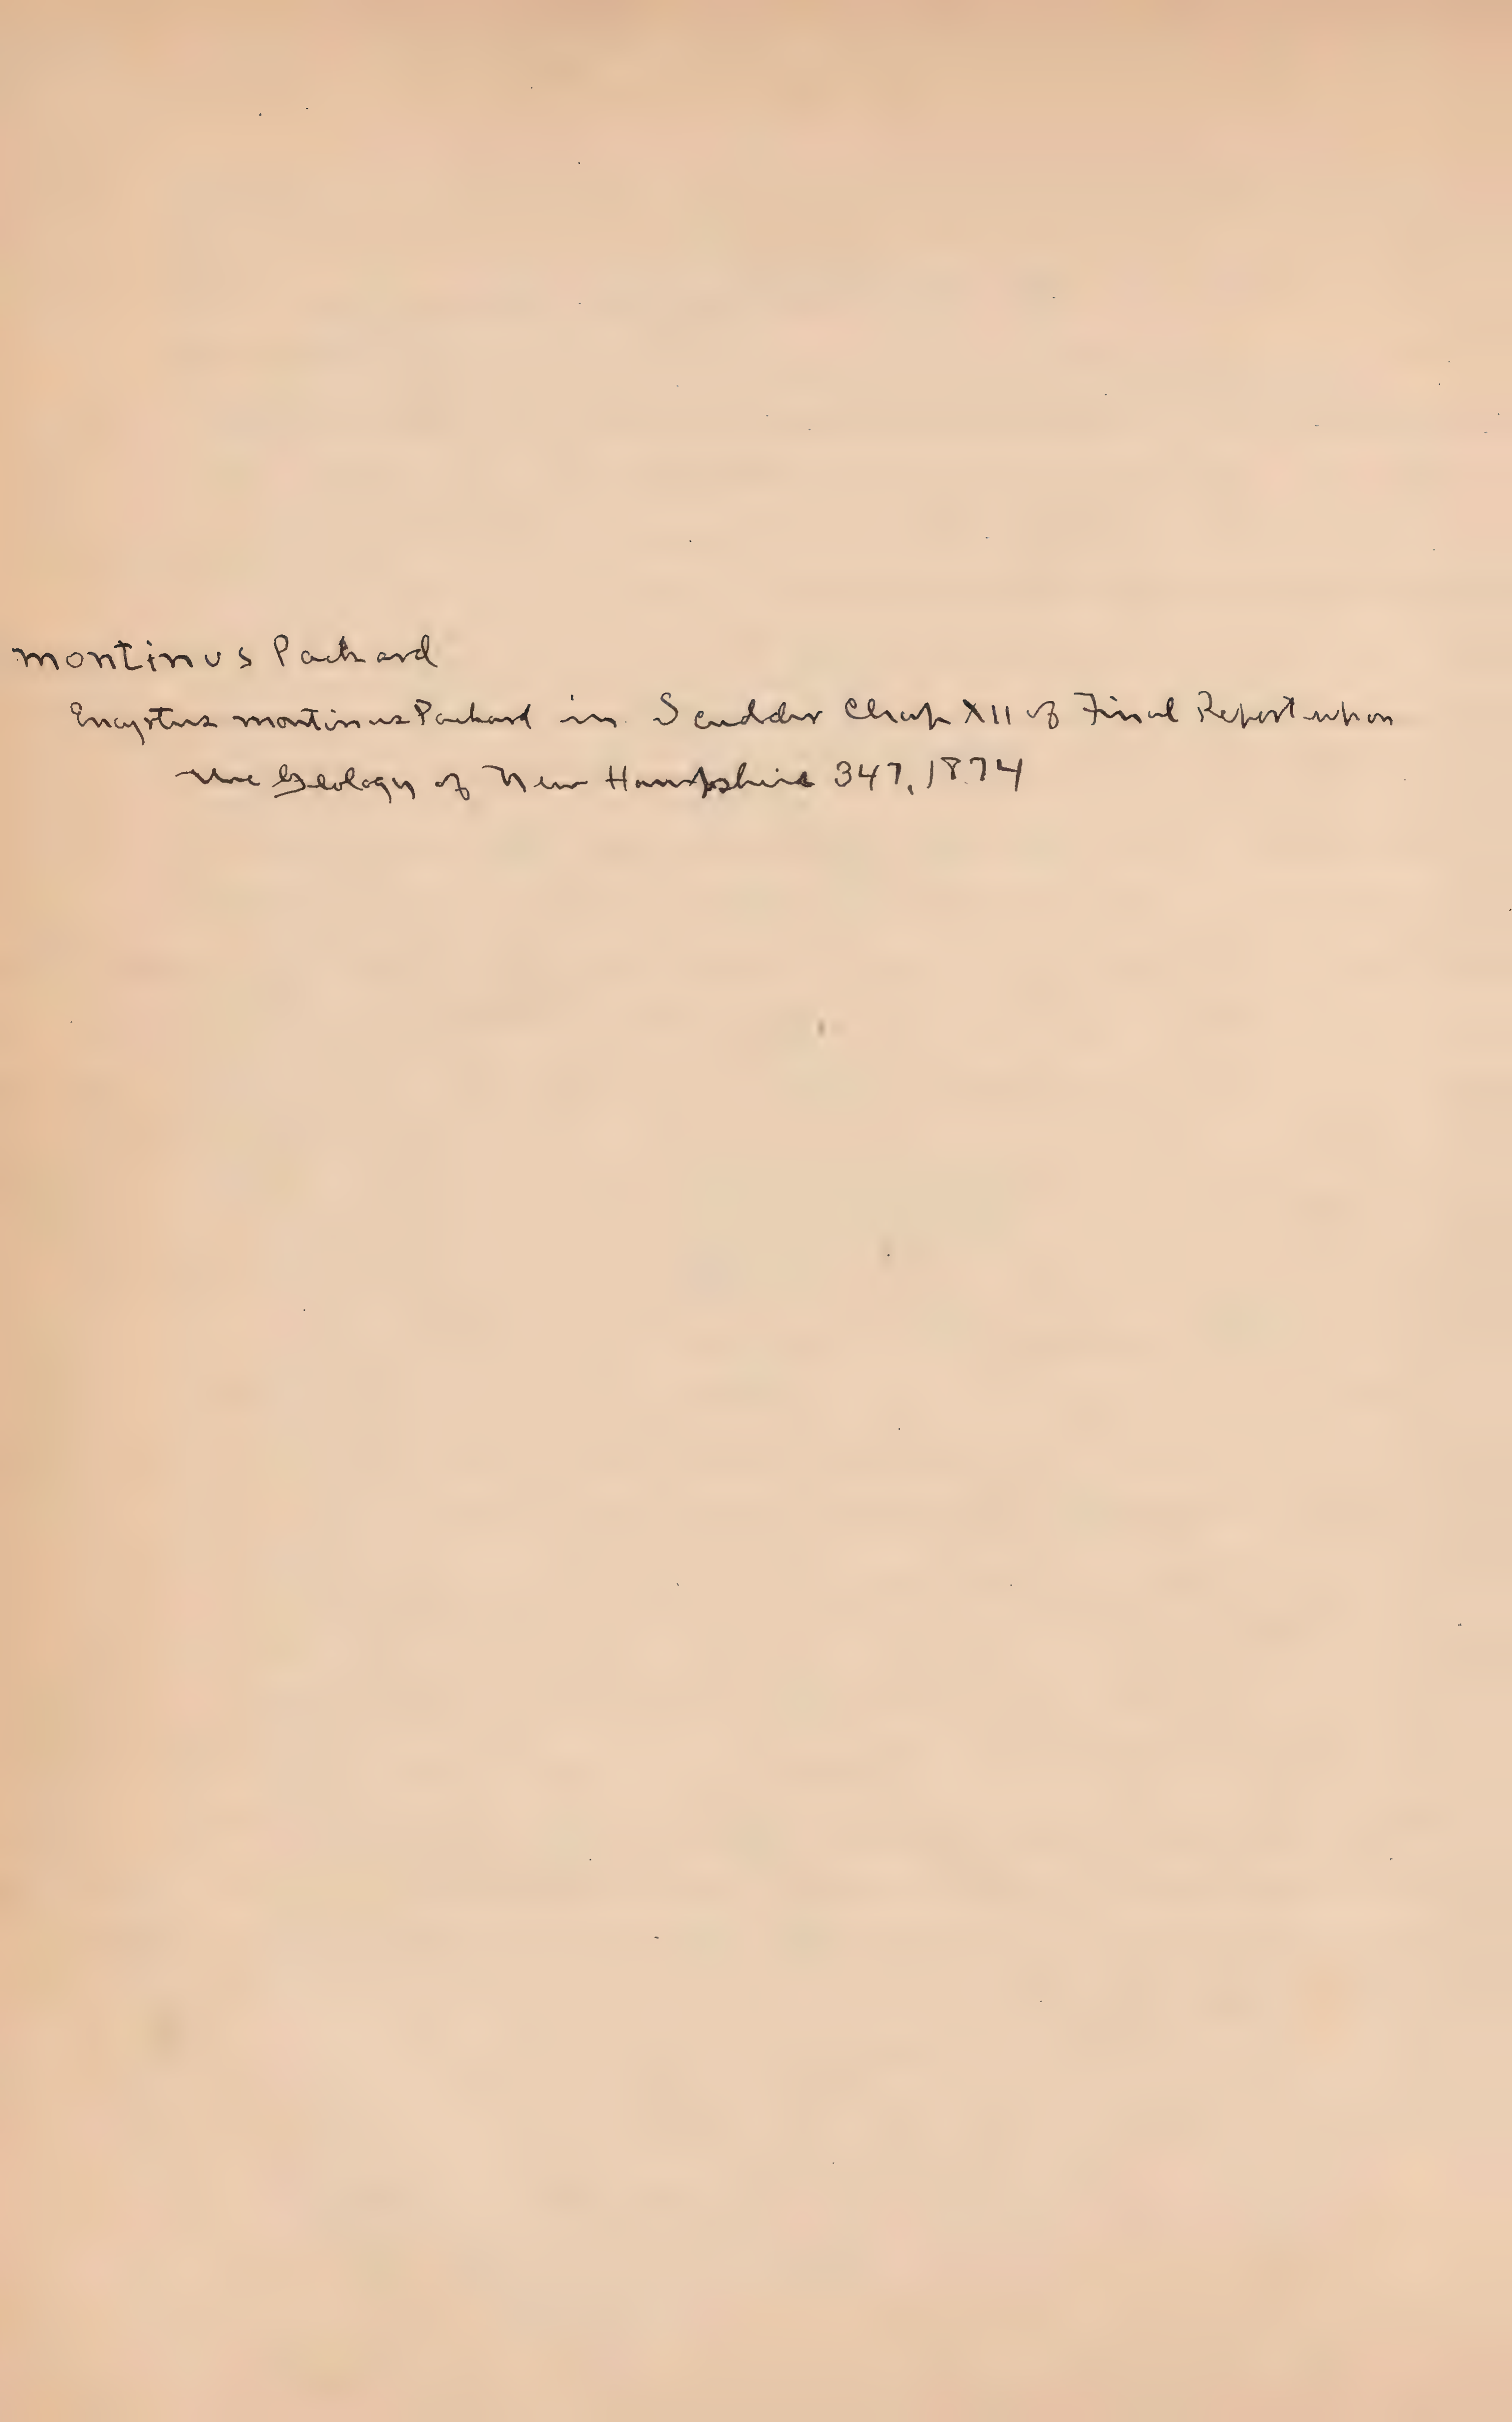 montinus Packard
Encyrtus montinus Packard in Scudder Chap XII of Final Report upon
the Geology of New Hampshire 347, 1874